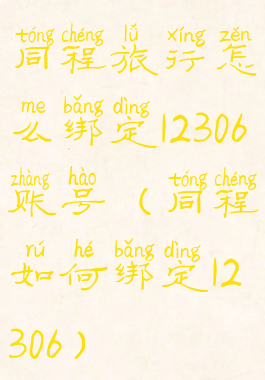 tóng chéng lǚ xíng zěn
同程旅行怎
me bǎng dìng
么绑定12306
zhàng hào tóng chéng
账号（同程
rú hé bǎng dìng
如何绑定12
306）